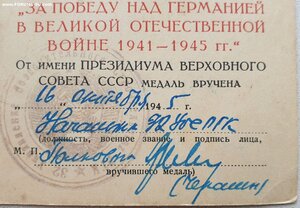 „ЗА ПОБЕДУ НАД ГЕРМАНИЕЙ
В ВЕЛИКОЙ ОТЕЧЕСТВЕННОЙ
ВОЙНЕ 1941—1945 гг.“
От имени ПРЕЗИДИУМА ВЕРХОВНОГО
СОВЕТА СССР МЕДАЛЬ ВРУЧЕНА
„16“ октября 1945 г.
(должность, военное звание и подпись лица,
М. П. Полковник
вручившего медаль)